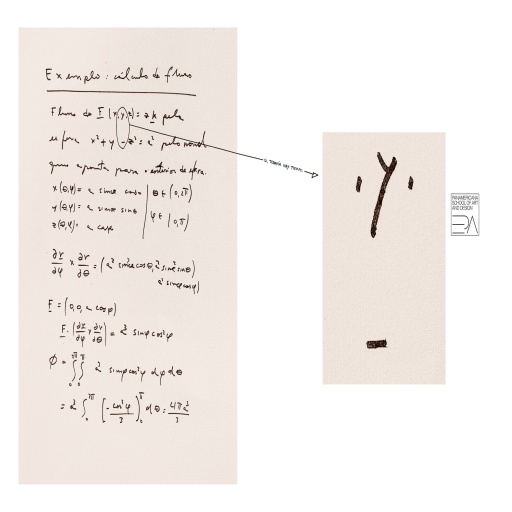 Exemplo: cálculo de fluxo
Fluxo de F(x,y,z) = z k pela
esfera x²+y-z² = a² pelo normal
que aponta para o exterior da esfera.
x(θ,φ) = a sinφ cosθ | θ ∈ (0,2π)
y(θ,φ) = a sinφ sinθ
φ ∈ (0,π)
z(θ,φ) = a cosφ
∂r/∂φ × ∂r/∂θ = (a² sin²φ cosθ, a² sin²φ sinθ
a² sinφ cosφ)
F = (0,0,a cosφ)
F·(∂r/∂φ × ∂r/∂θ) = a³ sinφ cos²φ
Φ = ∫₀²π ∫₀π a³ sinφ cos²φ dφ dθ
= a³ ∫₀²π [-cos³φ/3]₀π dθ = 4πa³/3
PANAMERICANA
SCHOOL OF ART
AND DESIGN
EPA